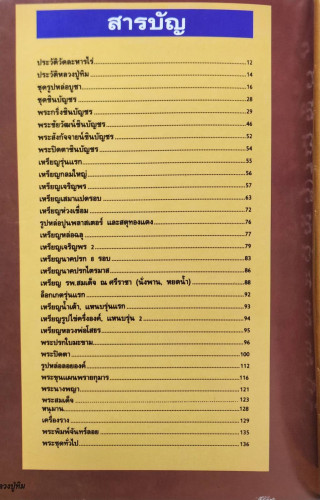 สารบัญ
ประวัติวัดละหารไร่ 12
ประวัติหลวงปู่ทิม 14
ชุดรูปหล่อบูชา 16
ชุดชินบัญชร 28
พระกริ่งชินบัญชร 29
พระชัยวัฒน์ชินบัญชร 46
พระสังกัจจายน์ชินบัญชร 52
พระปิดตาชินบัญชร 54
เหรียญรุ่นแรก 55
เหรียญกลมใหญ่ 56
เหรียญเจริญพร 57
เหรียญเสมาแปดรอบ 63
เหรียญห่วงเชื่อม 72
รูปหล่อปูนพลาสเตอร์ และสตุทองแดง 76
เหรียญหล่อฉลุ 77
เหรียญเจริญพร 2 79
เหรียญนาคปรก 8 รอบ 83
เหรียญนาคปรกไตรมาส 86
เหรียญ รพ.สมเด็จ ณ ศรีราชา (นั่งพาน, หยดน้ำ) 88
ล็อกเกตรุ่นแรก 92
เหรียญน้ำเต้า, แหนบรุ่นแรก 93
เหรียญรูปไข่ครึ่งองค์, แหนบรุ่น 2 94
เหรียญหลวงพ่อโสธร 95
พระปรกใบมะขาม 96
พระปิดตา 100
รูปหล่อลอยองค์ 112
พระขุนแผนพรายกุมาร 116
พระนางพญา 121
พระสมเด็จ 123
หนุมาน 128
เครื่องราง 129
พระพิมพ์จันทร์ลอย 135
พระชุดทั่วไป 136
หลวงปู่ทิม